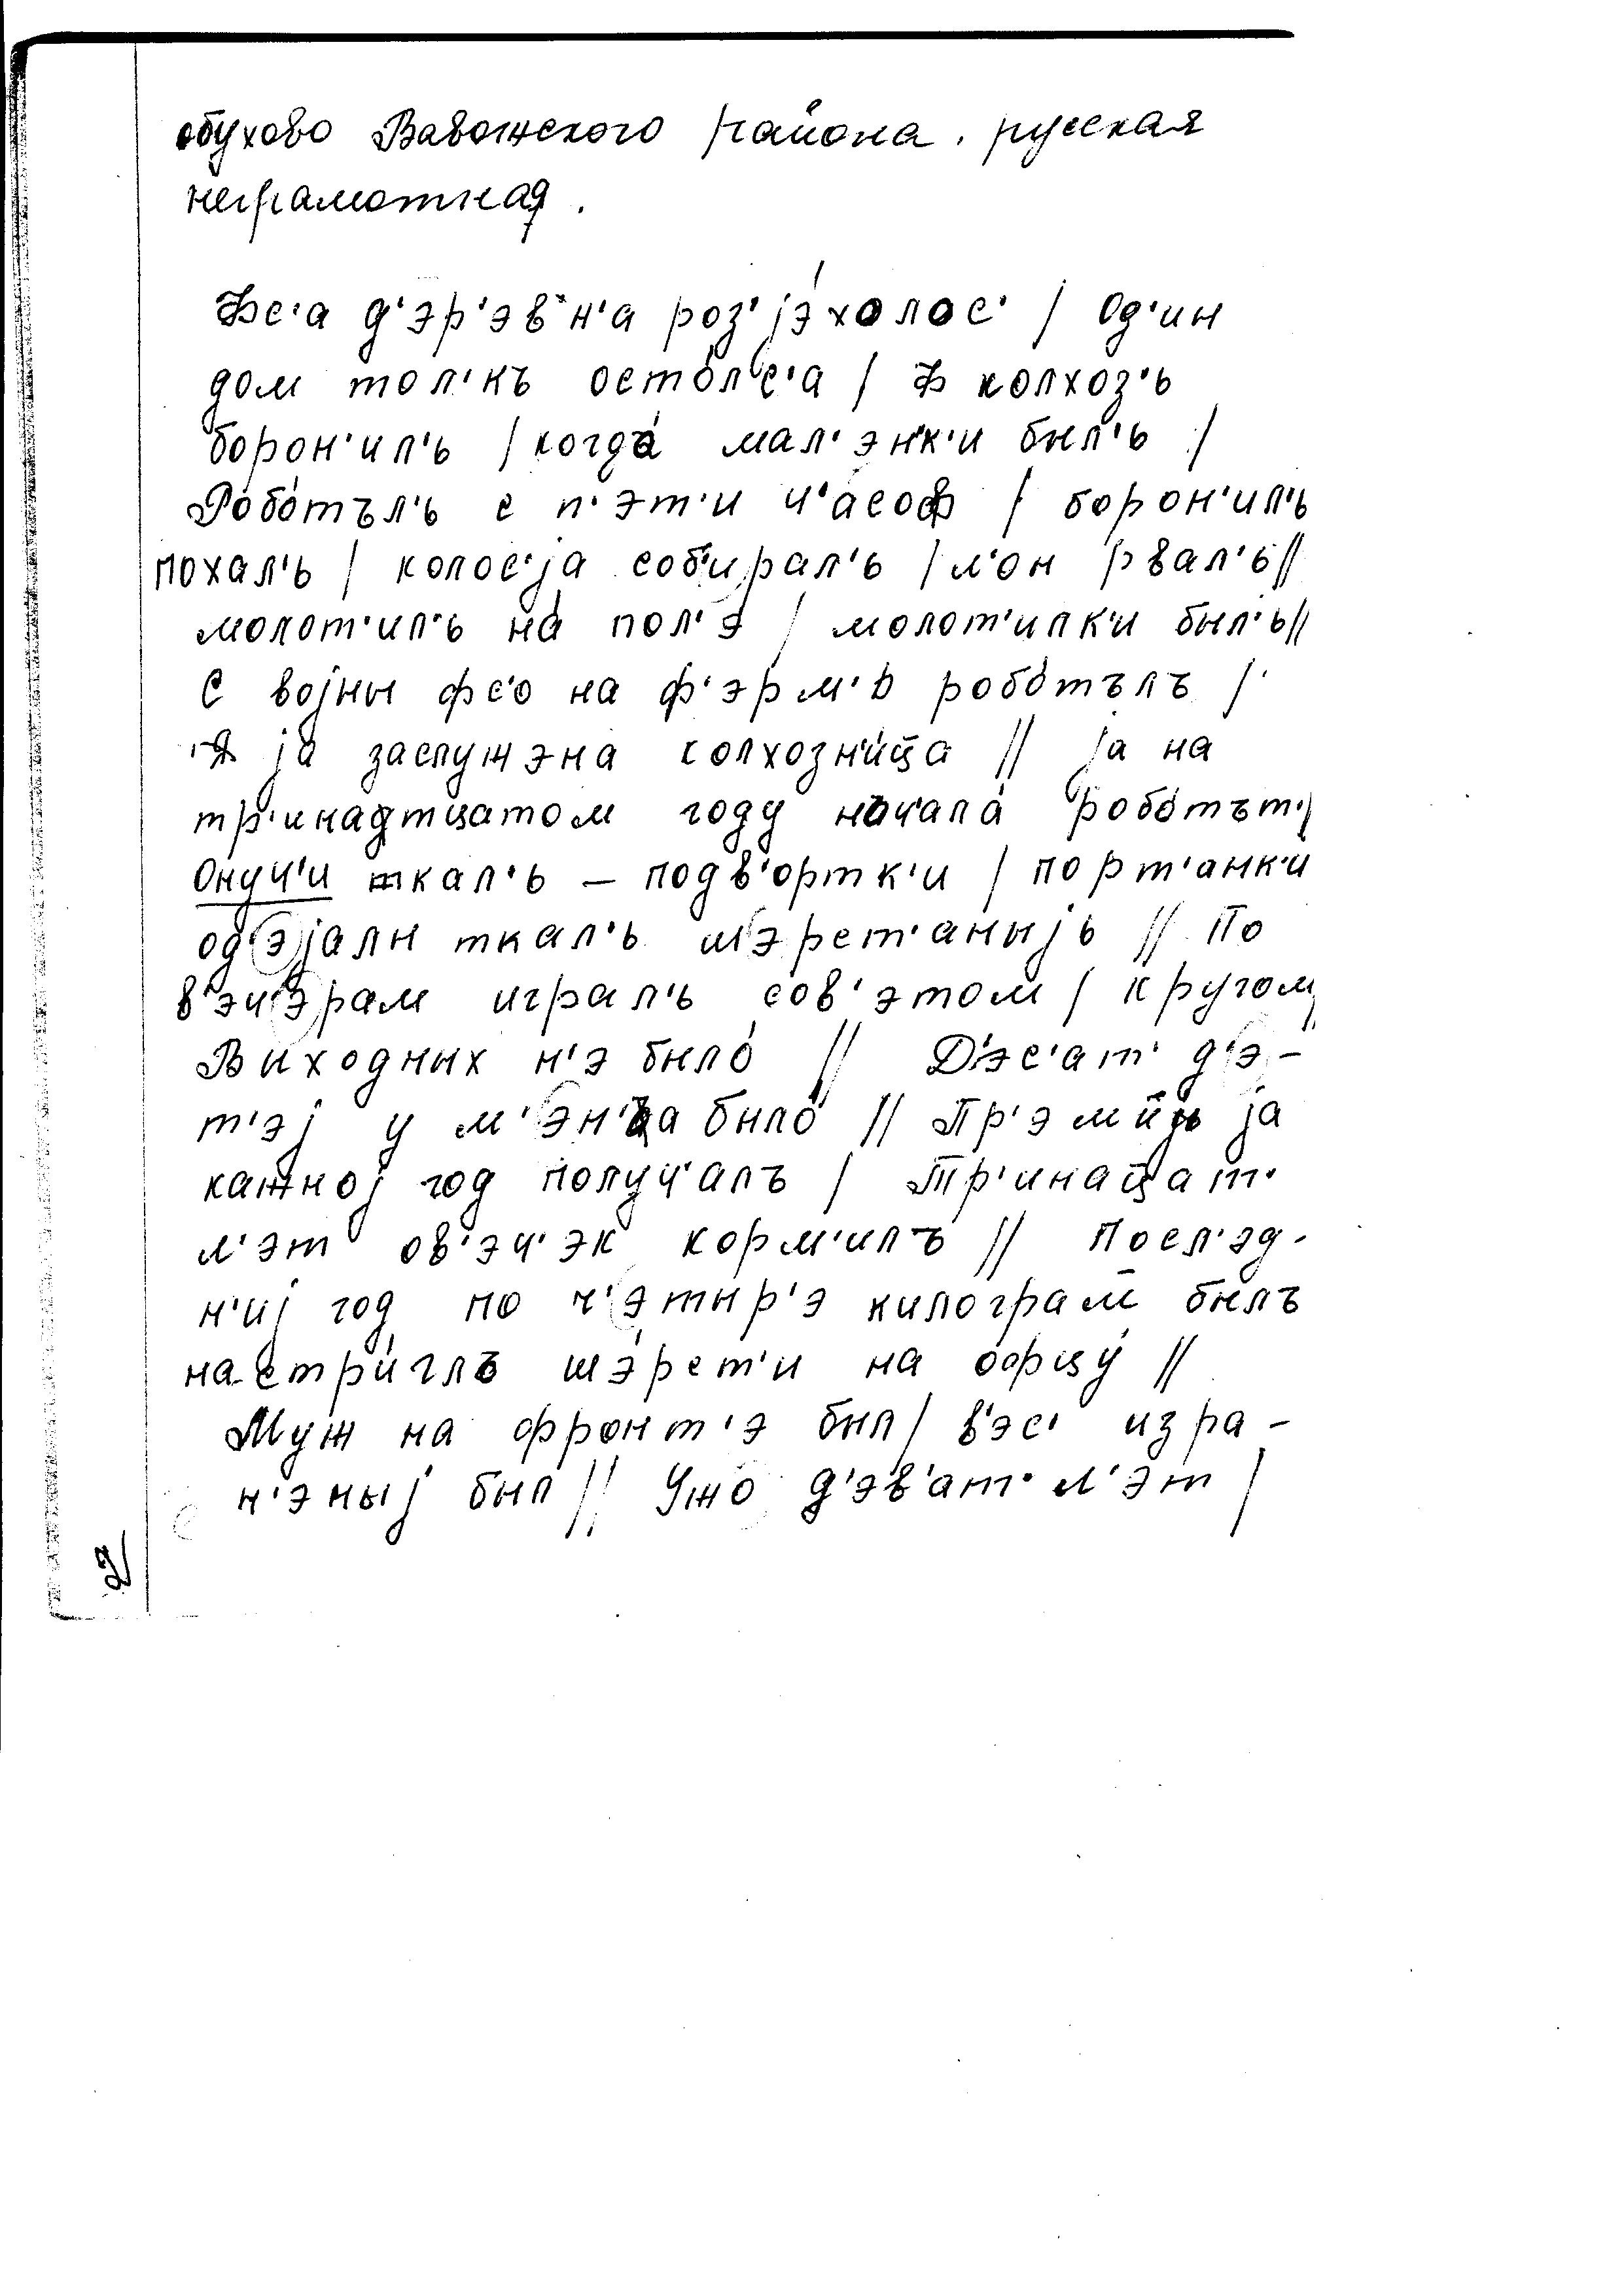 обухово Вавожского района. русская
неграмотная.
Фс'а д'эр'эв'н'а роз'jэ́холос' / Од'ин
дом тол'къ остолс'а / Ф колхоз'ь
борон'ил'ь / когда́ мал'энк'и был'ь /
Робо́тъл'ь с п'эт'и ч'асоф / борон'ил'ь
похал'ь / колос'jа соб'ирал'ь / л'он рвал'ь //
молот'ил'ь на́ пол'э / молот'илк'и был'ь //
С воjны фс'о на ф'эрм'ь робо́тълъ /
А jа заслужэна колхозн'ица //  jа на
тр'инадтцатом году начала́ робо́тът'/
Онуч'и ткал'ь – подв'ортк'и / порт'анк'и
од'эjалы ткал'ь шэрст'аныjь // По
в'эч'эрам играл'ь сов'этом / кругом/
Выходных н'э было́ // Д'эс'ат' д'э-
т'эj у м'эн'а было́ // Пр'эмиjь jа
кажноj год получ'алъ / Тр'инац̄ат'
л'эт ов'эч'эк корм'илъ // Посл'эд-
н'иj год по ч'этыр'э килограм̄ былъ
настри́глъ шэ́рст'и на офцу́ //
Муж на фронт'э был / в'эс' изра-
н'эныj был // Ужо д'эв'ат' л'эт /
2